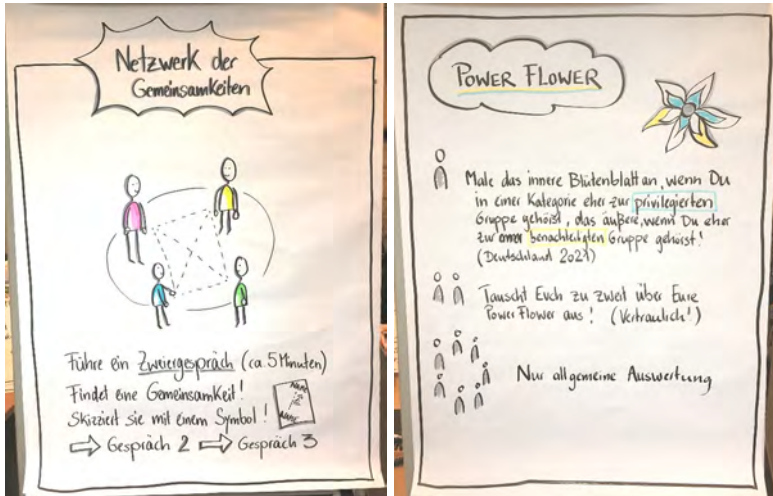 Netzwerk der
Gemeinsamkeiten
Führe ein Zweiergespräch (ca. 5 Minuten)
Findet eine Gemeinsamkeit!
Skizziert sie mit einem Symbol!
Name
Name
⇨ Gespräch 2 ⇨ Gespräch 3
POWER FLOWER
Male das innere Blütenblatt an, wenn Du
in einer Kategorie eher zur privilegierten
Gruppe gehörst, das äußere, wenn Du eher
zur benachteiligten Gruppe gehörst!
(Deutschland 2021)
Tauscht Euch zu zweit über Eure
Power Flower aus! (Vertraulich!)
Nur allgemeine Auswertung